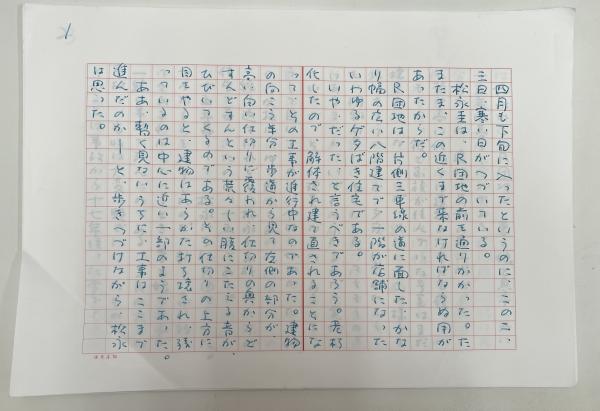 1
四月も下旬に入ったというのに、この二、
三日、寒い日がつづいている。
松永圭は、R団地の前を通りかかった。た
またま、この近くまで来なければならぬ用が
あったからだ。
R団地は、片側三車線の道に面した、かな
り幅の広い八階建てで、一階が店舗になった
いわゆるゲタばき住宅である。
いや、だった、と言うべきであろう。老朽
化したので、解体され建て直されることにな
って、その工事が進行中なのであった。建物
の向こう半分、歩道から見て左側の部分が、
高い白い仕切りに覆われ、仕切りの奥からど
すんどすんという荒々しい腹にこたえる音が、
ひびいてくるのである。その仕切りの上方に
目をやると、建物はあらかた打ち壊され、残
っているのは中心に近い一部のようであった。
ああ、暫く見ないうちに、工事はここまで
進んだのか――と、歩きつづけながら、松永
は思った。